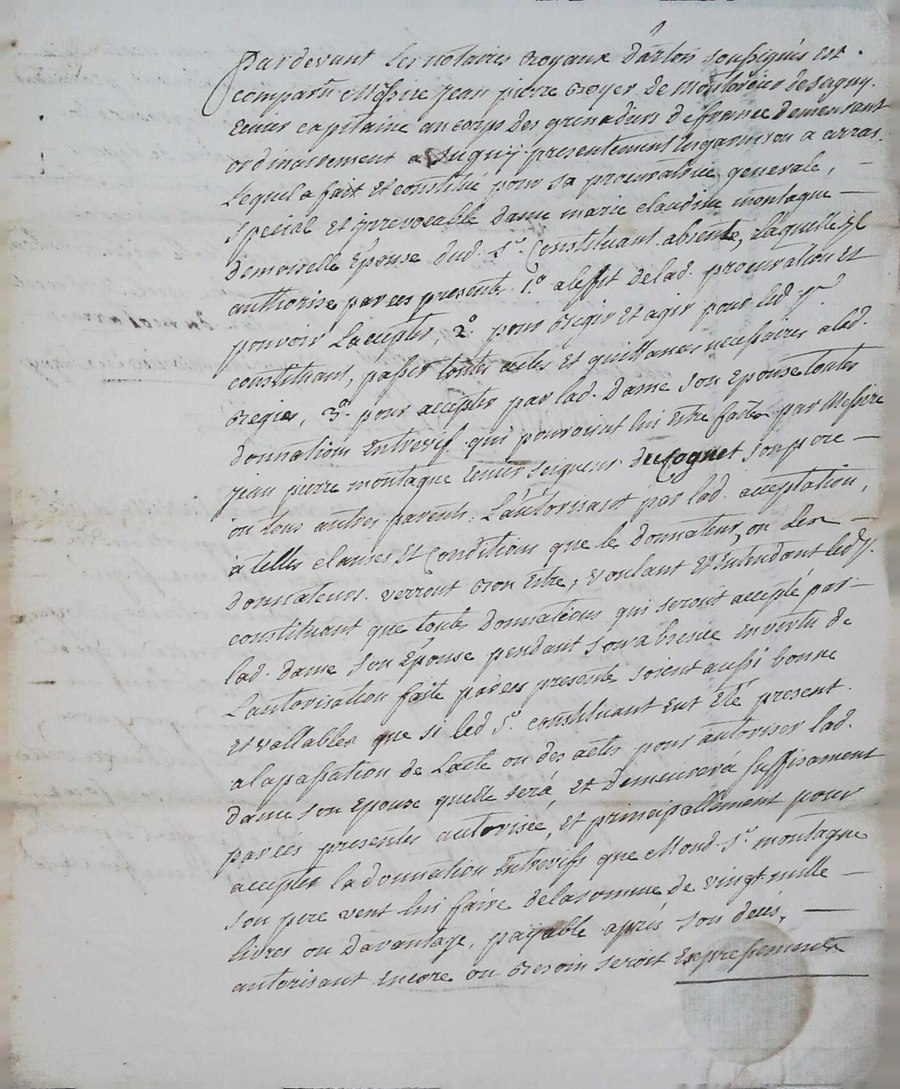 Pardevant Les notaires Royaux D'artois soussignés est
comparu Messire jean pierre Royer de Monloreier de Sugny
Ecuier capitaine au corps des grenadiers de france demeurant
ordinairement a Sugny presentement en garnison a arras
Lequel a fait et constitué pour sa procuratrice generale,
special et irrevocable dame marie claudine montagne
demoiselle Epouse dud. Sr. Constituant absente, laquelle il
authorise par ces presente 1.o a leffet de lad. procuration et
pouvoir L'accepter, 2.o pour Regir et agir pour led. Sr.
constituant, passer toutes actes et quittances necessaires a lad.
Regies, 3.o pour accepter par lad. Dame son Epouse toutes
donnations Entrevif qui pourroient lui Etre faites par Messire
jean pierre montagne Ecuier seigneur du Cognet son pere
ou tous autres parents, L'autorisant par lad. acceptation,
a telles clauses et Conditions que le donnateur ou les
donnateurs verront Bon Etre, voulant et Entendant led. Sr.
constituant que toutes donnations qui seront accepté par
lad. dame son Epouse pendant son absence en vertu de
L'autorisation faite par ces presente soient aussi bonne
et vallables que si led. Sr. constituant eut Eté present
a la passation de Lacte ou des actes pour autoriser lad.
dame son Epouse quelle sera et demeurera suffisament
par ces presentes autorisée, et principallement pour
accepter la donnation Entrevifs que Mond. Sr. montagne
son pere veut lui faire de la somme de vingt mille
livres ou davantage, payable aprés son décés,
autorisant encore ou Besoin seroit Expressement